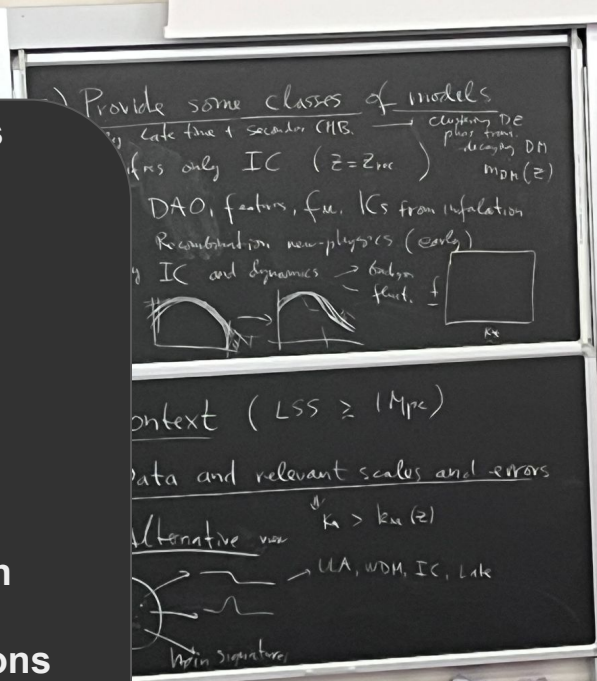 ) Provide some classes of models
Late time + secondary CMB. → clustering DE
phas trans.
decaying DM
only IC (z = zrec)
mDM(z)
DAO, features, fν, ICs from infalation
Recombination new-physics (early)
IC and dynamics → baryon
fluct. f
k*
ontext (LSS ≥ 1 Mpc)
ata and relevant scales and errors
> kNL(z)
Alternative view
ULA, WDM, IC, Late
Main signatures
s
n
ons